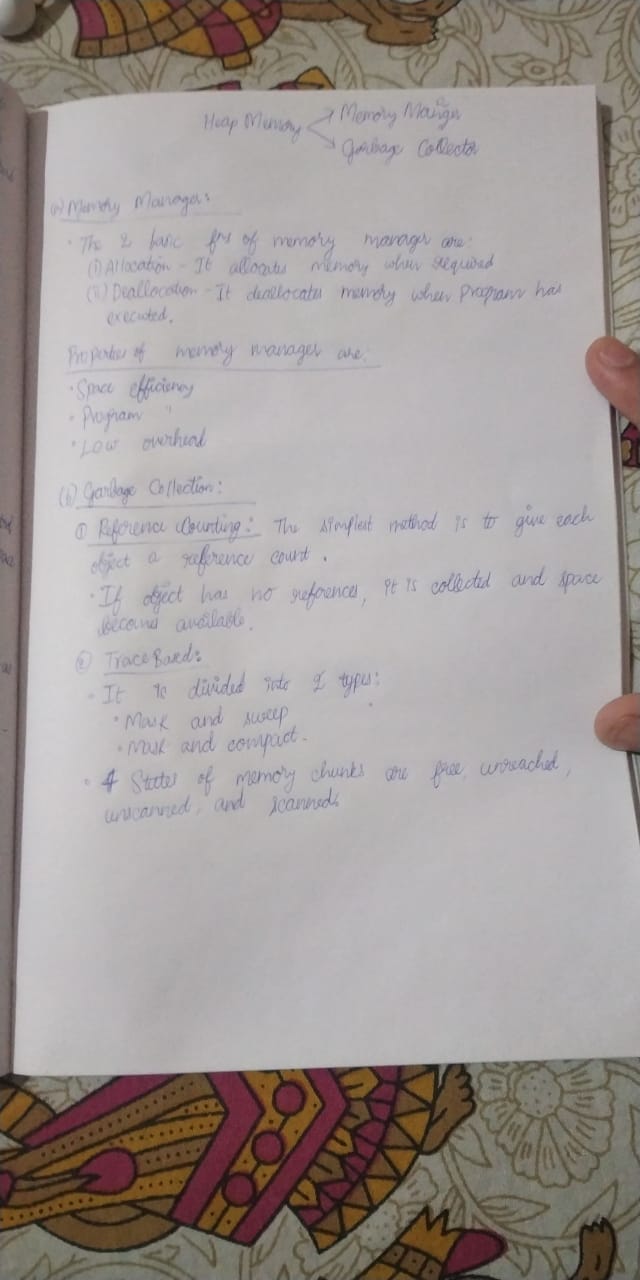 Heap Memory
Memory Manager
Garbage Collector
(a) Memory Manager:
• The 2 basic fns of memory manager are:
(i) Allocation - It allocates memory when required
(ii) Deallocation - It deallocates memory when program has
executed.
Properties of memory manager are:
• Space efficiency
• Program "
• Low overhead
(b) Garbage Collection:
① Reference Counting: The simplest method is to give each
object a reference count.
• If object has no references, it is collected and space
becomes available.
② Trace Based:
• It is divided into 2 types:
• Mark and sweep
• Mark and compact.
• 4 States of memory chunks are free, unreached,
unscanned, and scanned.